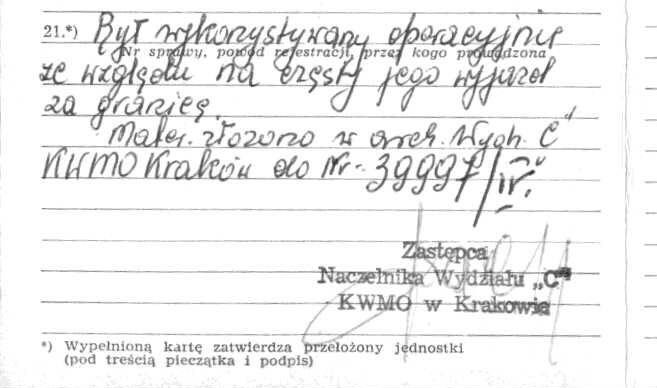 21.*) Był wykozystywany operacyjnie
Nr sprawy, powód rejestracji, przez kogo prowadzona
ze względu na częsty jego wyjazd
za granicę.
Mater. złożono w arch. Wydz. C"
KWMO Kraków do Nr. 39997/IV.
Zastępca
Naczelnika Wydziału „C"
KWMO w Krakowie
*) Wypełnioną kartę zatwierdza przełożony jednostki
(pod treścią pieczątka i podpis)